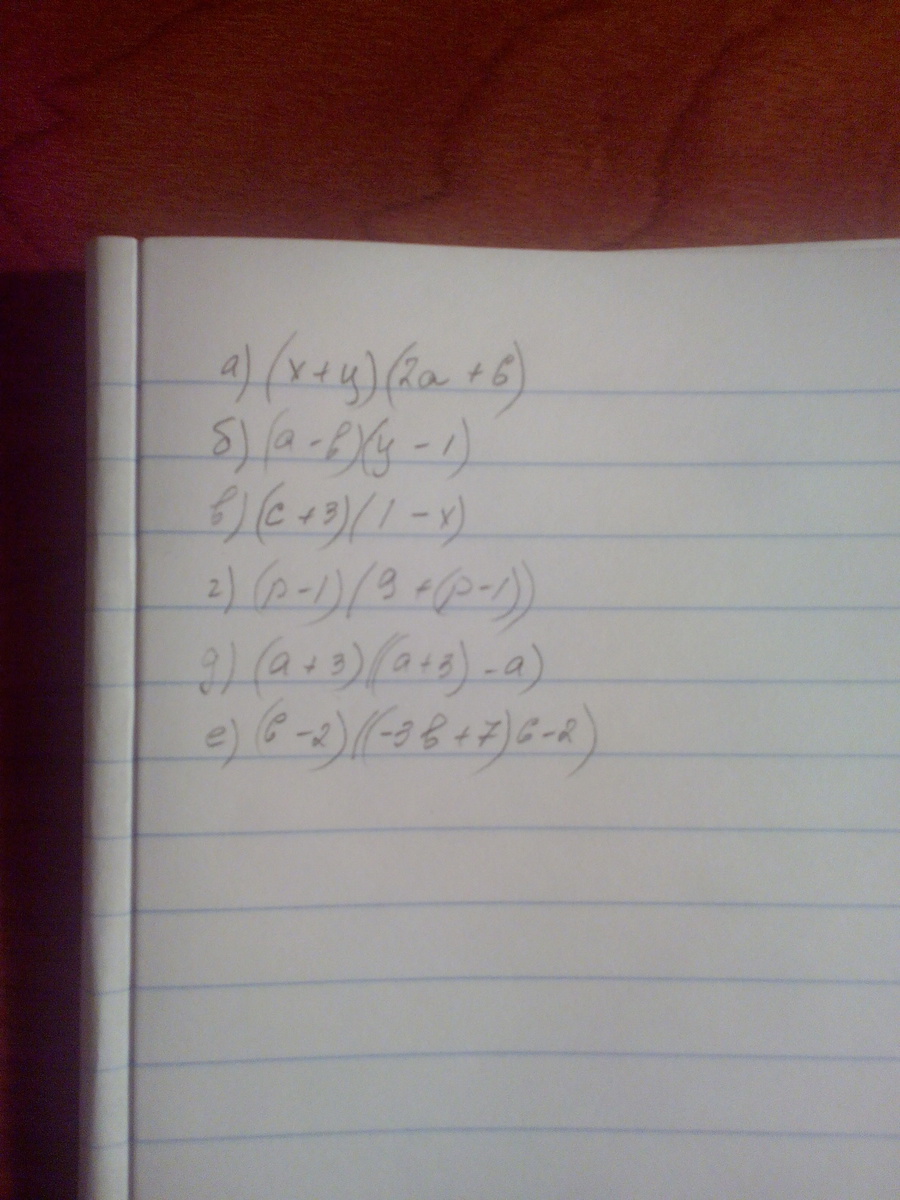 а) (x+y)(2a+6)
б) (a-b)(y-1)
в) (c+3)(1-x)
г) (p-1)(9+(p-1))
д) (a+3)((a+3)-a)
е) (6-2)((-3b+7)6-2)